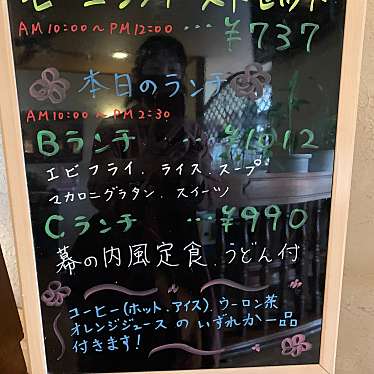 モーニングトーストセット
AM 10:00〜PM 12:00 ...¥737
本日のランチ
AM 10:00〜PM 2:30
Bランチ ...¥1012
エビフライ、ライス、スープ
マカロニグラタン、スイーツ
Cランチ ...¥990
幕の内風定食、うどん付
コーヒー(ホット、アイス)、ウーロン茶
オレンジジュース の いずれか一品
付きます!